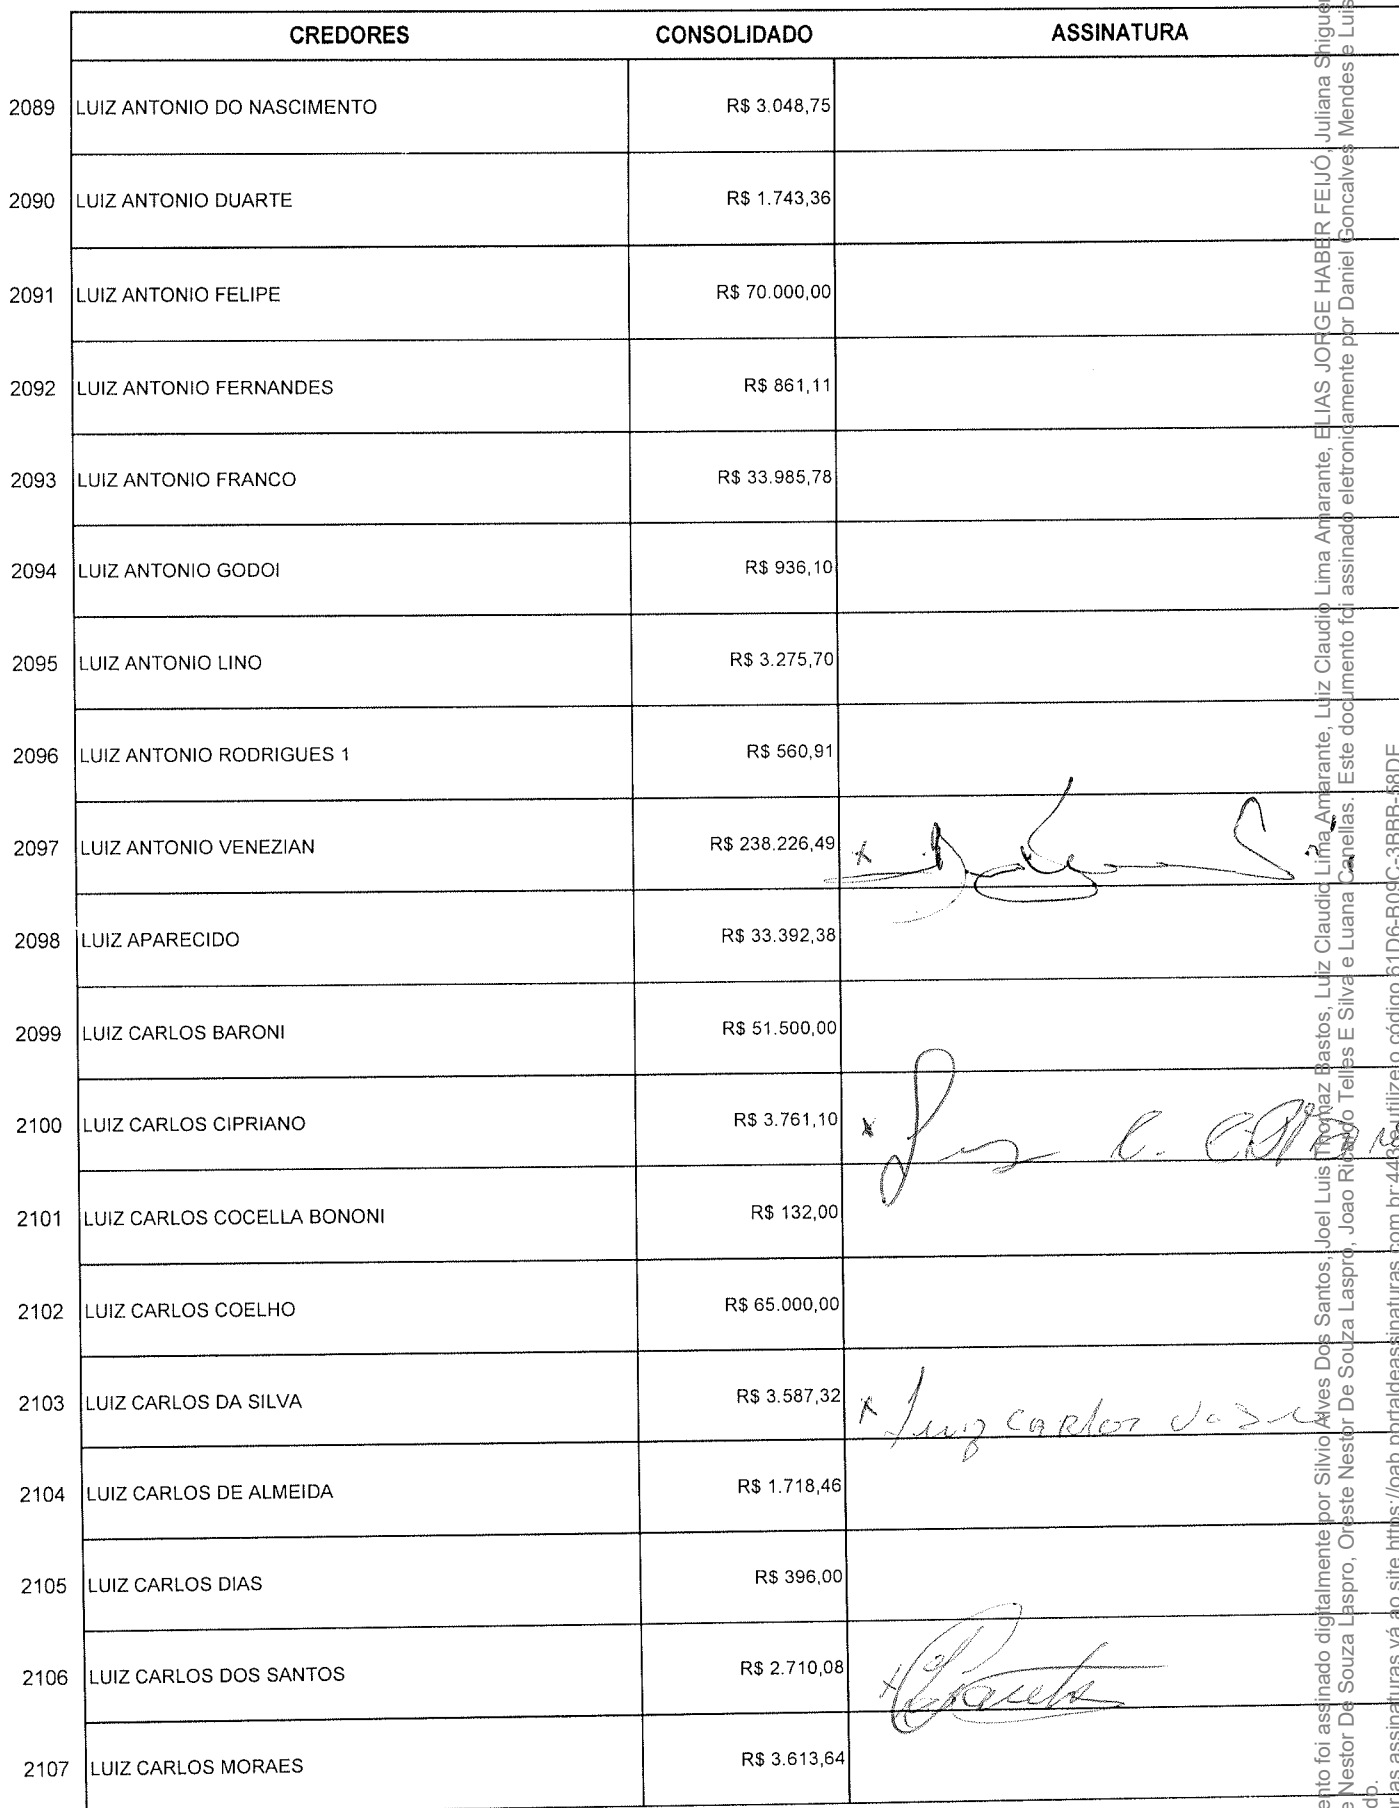 CREDORES CONSOLIDADO ASSINATURA
2089 LUIZ ANTONIO DO NASCIMENTO R$ 3.048,75
2090 LUIZ ANTONIO DUARTE R$ 1.743,36
2091 LUIZ ANTONIO FELIPE R$ 70.000,00
2092 LUIZ ANTONIO FERNANDES R$ 861,11
2093 LUIZ ANTONIO FRANCO R$ 33.985,78
2094 LUIZ ANTONIO GODOI R$ 936,10
2095 LUIZ ANTONIO LINO R$ 3.275,70
2096 LUIZ ANTONIO RODRIGUES 1 R$ 560,91
2097 LUIZ ANTONIO VENEZIAN R$ 238.226,49 x
2098 LUIZ APARECIDO R$ 33.392,38
2099 LUIZ CARLOS BARONI R$ 51.500,00
2100 LUIZ CARLOS CIPRIANO R$ 3.761,10 x
2101 LUIZ CARLOS COCELLA BONONI R$ 132,00
2102 LUIZ CARLOS COELHO R$ 65.000,00
2103 LUIZ CARLOS DA SILVA R$ 3.587,32 x Luiz Carlos da
2104 LUIZ CARLOS DE ALMEIDA R$ 1.718,46
2105 LUIZ CARLOS DIAS R$ 396,00
2106 LUIZ CARLOS DOS SANTOS R$ 2.710,08 x
2107 LUIZ CARLOS MORAES R$ 3.613,64
ento foi assinado digitalmente por Silvio Alves Dos Santos, Joel Luis Thomaz Bastos, Luiz Claudio Lima Amarante, Luiz Claudio Lima Amarante, ELIAS JORGE HABER FEIJÓ, Juliana Shiguer
e Nestor De Souza Laspro, Oreste Nestor De Souza Laspro, Joao Ricardo Telles E Silva e Luana Canellas. Este documento foi assinado eletronicamente por Daniel Goncalves Mendes e Luis
do.
as assinaturas vá ao site https://oab.portaldeassinaturas.com.br:443 e utilize o código 61D6-B09C-3BBB-58DF